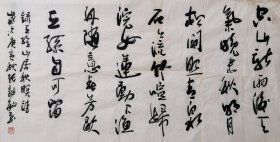 空山新雨後天
氣晚來秋明月
松間照清泉
石上流竹喧歸
浣女蓮動下漁
舟隨意春芳歇
王孫自可留
錄王維山居秋暝詩
歲次庚